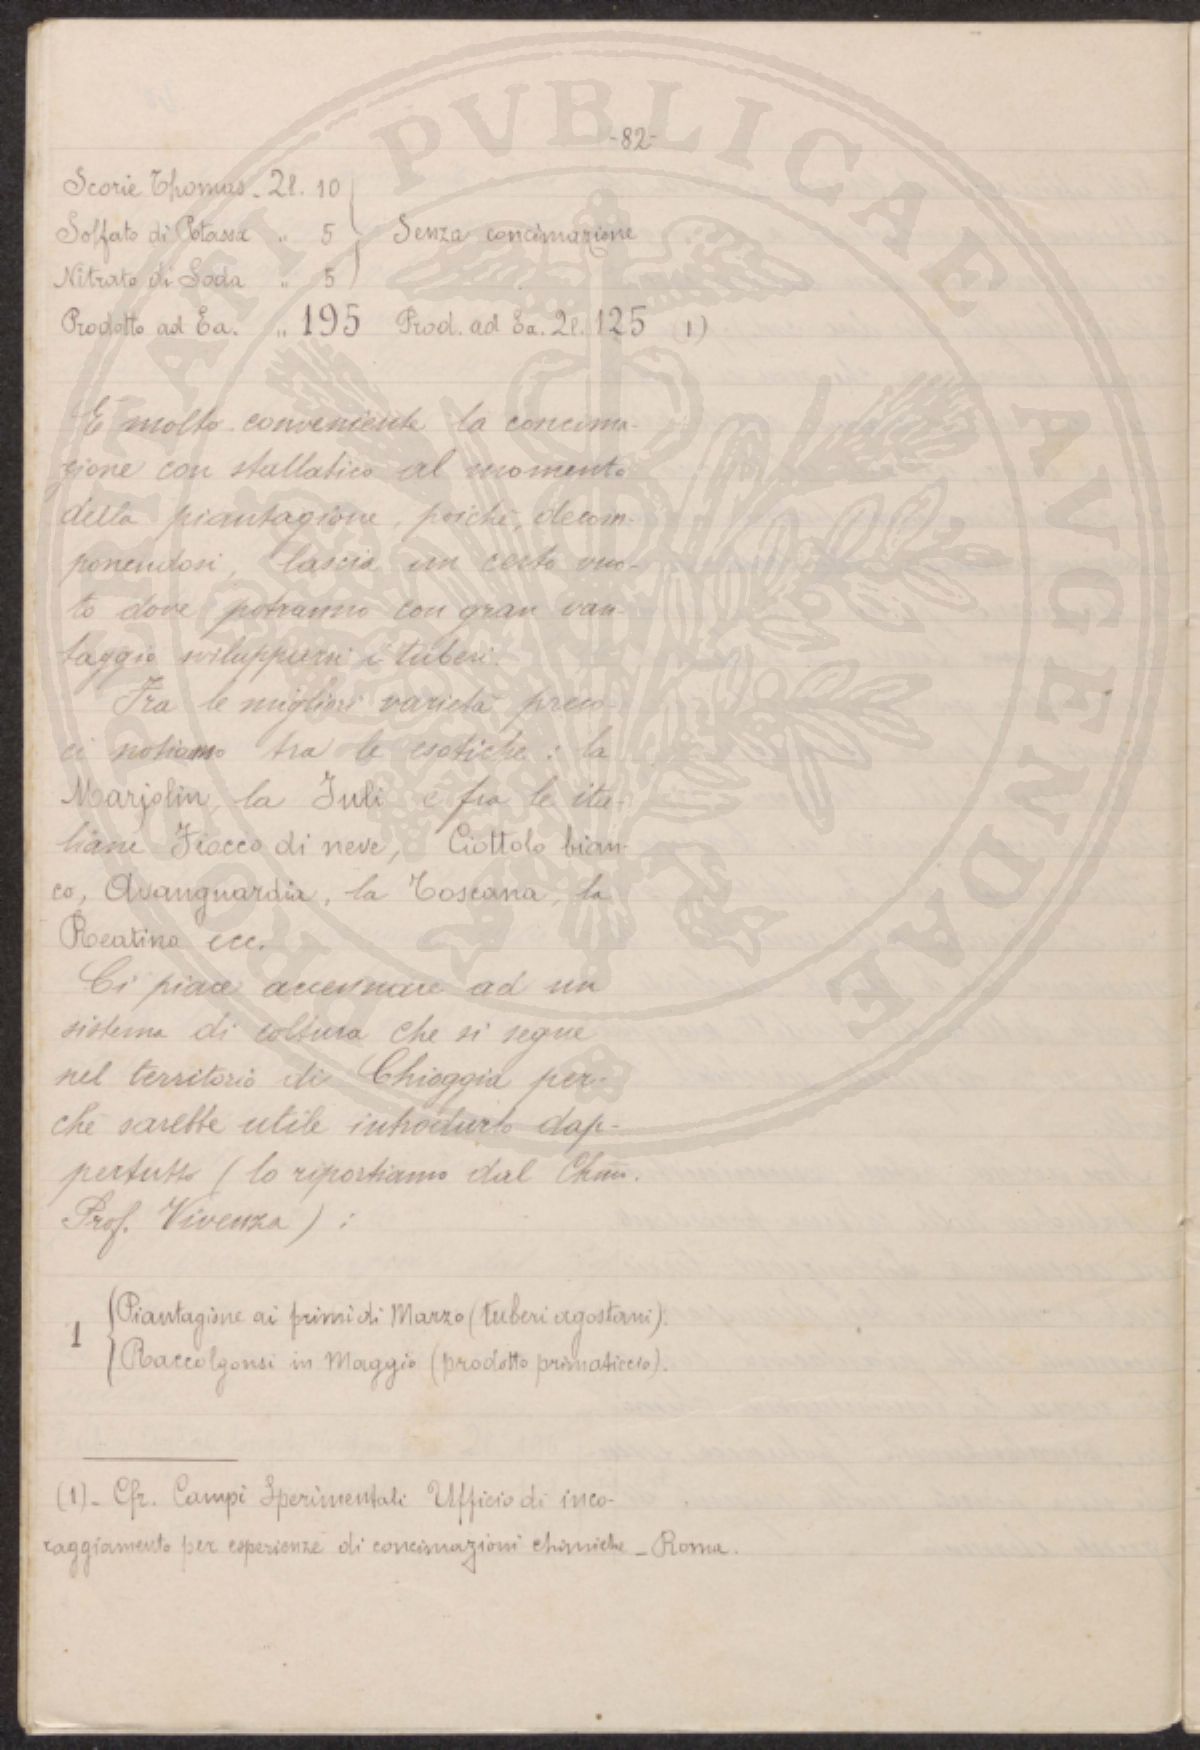 -82-
Scorie Thomas - Ql. 10
Solfato di Potassa „ 5 Senza concimazione
Nitrato di Soda „ 5
Prodotto ad Ea. „ 195 Prod. ad Ea. Ql. 125 (1)
È molto conveniente la concima-
zione con stallatico al momento
della piantagione, poichè, decom-
ponendosi, lascia un certo vuo-
to dove potranno con gran van-
taggio svilupparsi i tuberi.
Fra le migliori varietà preco-
ci notiamo tra le esotiche: la
Marjolin, la Juli e fra le ita-
liane Fiocco di neve, Ciottolo bian-
co, Avanguardia, la Toscana, la
Reatina ecc.
Ci piace accennare ad un
sistema di coltura che si segue
nel territorio di Chioggia per-
chè sarebbe utile introdurlo dap-
pertutto (lo riportiamo dal Chm.
Prof. Vivenza):
1 Piantagione ai primi di Marzo (tuberi agostani).
Raccolgonsi in Maggio (prodotto primaticcio).
(1)- Cfr. Campi Sperimentali Ufficio di inco-
raggiamento per esperienze di concimazioni chimiche - Roma.
PROSPERITATI PVBLICAE AVGENDAE